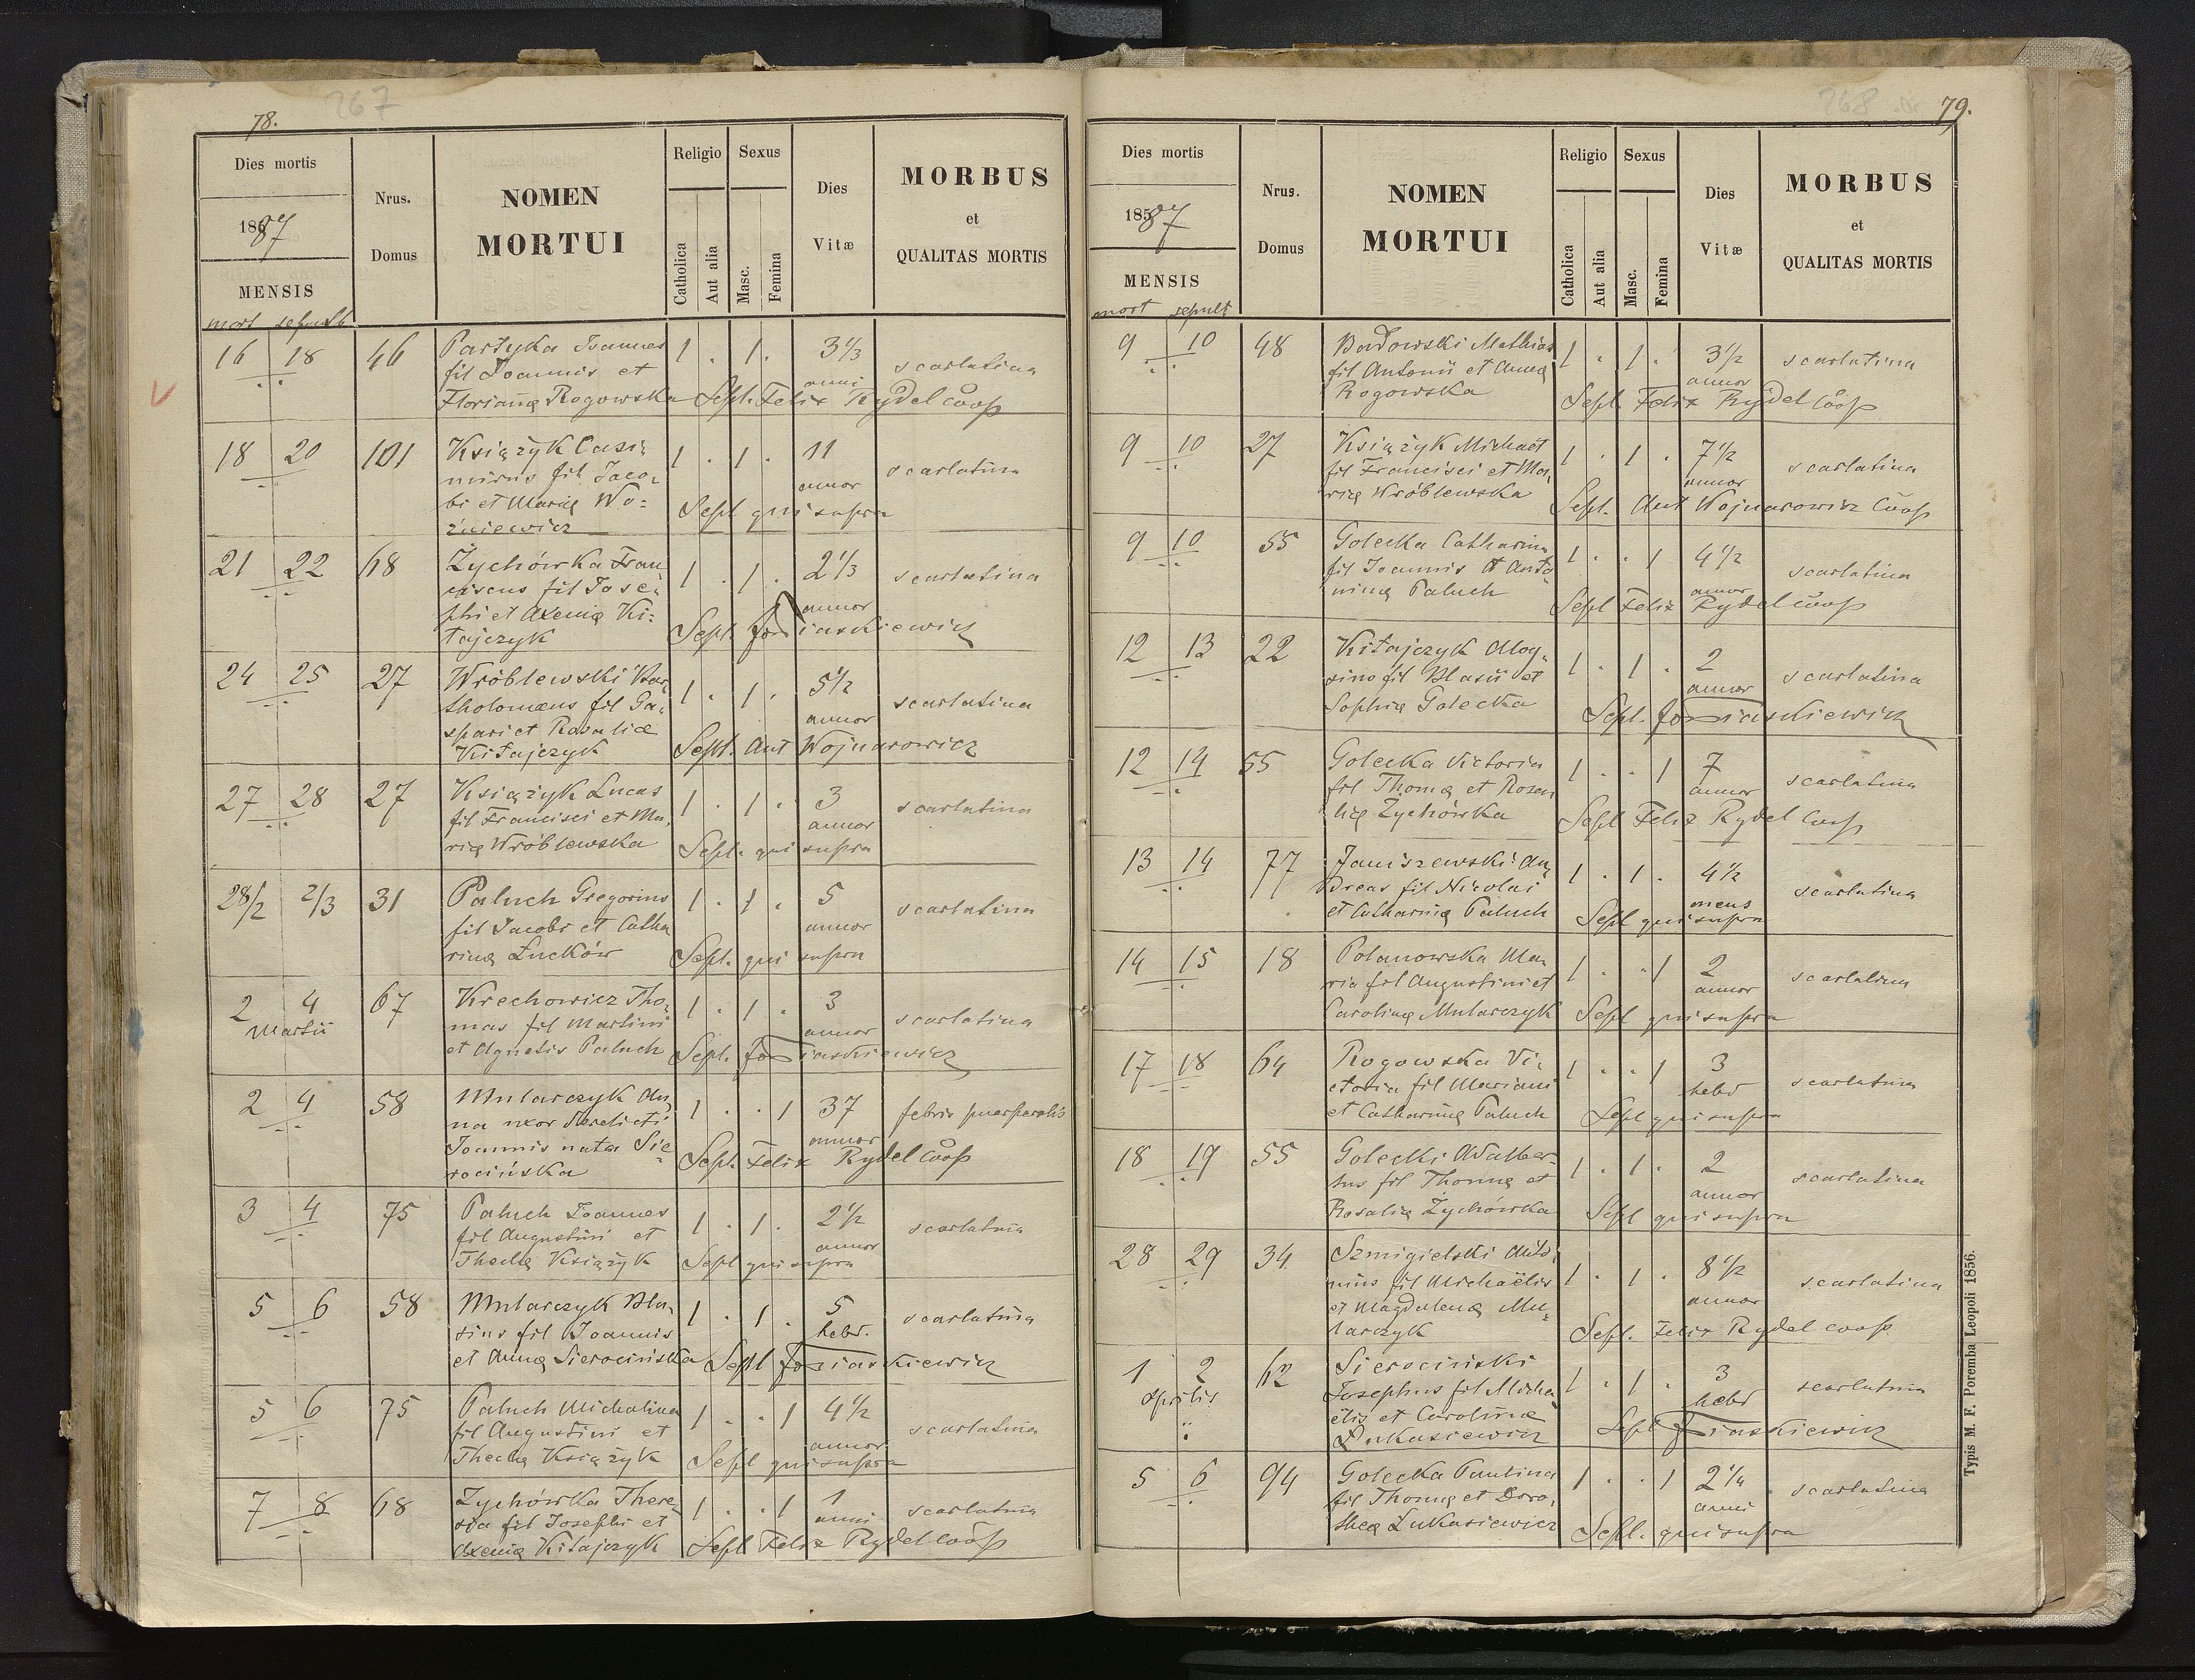 78.
267
Dies mortis
1887
MENSIS
mort sepult
Nrus.
Domus
NOMEN
MORTUI
Religio
Catholica
Aut alia
Sexus
Masc.
Femina
Dies
Vitæ
MORBUS
et
QUALITAS MORTIS
16 18 46 Partyka Joannes 1 . 1 . 3 1/3 scarlatina
fil Joannis et anni
Florianę Rogowska Sepl. Felix Rydel Coop
18 20 101 Książyk Casi- 1 . 1 . 11 scarlatina
mirus fil. Jaco- annor
bi et Marię Wo- Sepl qui supra
źniewicz
21 22 68 Żychówka Fran 1 . 1 . 2 1/3 scarlatina
ciscus fil Jose- annor
phi et Axenię Ki- Sepl. Jaśkiewicz
tajczyk
24 25 27 Wróblewski Bar- 1 . 1 . 5 1/2 scarlatina
tholomeus fil Ga- annor
spari et Rosaliæ
Kitajczyk Sepl. Ant Wojnarowicz
27 28 27 Książyk Lucas 1 . 1 . 3 scarlatina
fil Francisci et Ma- annor
rię Wróblewska Sepl. qui supra
28/2 2/3 31 Paluch Gregorius 1 . 1 . 5 scarlatina
fil Jacobi et Catha annor
rinę Łucków Sepl. qui supra
2 4 67 Krechowicz Tho- 1 . 1 . 3 scarlatina
Martii mas fil Martini annor
et Agnetis Paluch Sepl. Jaśkiewicz
2 4 58 Mularczyk An- 1 . . 1 37 febris puerperalis
na uxor derelicti annor
Joannis nata Sie- Sepl. Felix Rydel Coop
rocińska
3 4 75 Paluch Joannes 1 . 1 . 2 1/2 scarlatina
fil Augustini et annor
Theclę Książyk Sepl qui supra
5 6 58 Mularczyk Bla- 1 . 1 . 5 scarlatina
sius fil Joannis hebd.
et Annę Sierocińska Sepl Jaśkiewicz
5 6 75 Paluch Michalina 1 . . 1 4 1/2 scarlatina
fil Augustini et annor
Theclę Książyk Sepl qui supra
7 8 68 Zychówka There- 1 . . 1 1 scarlatina
sia fil Josephi et anni
Axenię Kitajczyk Sepl Felix Rydel Coop
79.
268
Dies mortis
1887
MENSIS
mort sepult
Nrus.
Domus
NOMEN
MORTUI
Religio
Catholica
Aut alia
Sexus
Masc.
Femina
Dies
Vitæ
MORBUS
et
QUALITAS MORTIS
9 10 48 Badowski Mathias 1 . 1 . 3 1/2 scarlatina
fil Antonii et Annę annor
Rogowska Sepl Felix Rydel Coop
9 10 27 Książyk Michael 1 . 1 . 7 1/2 scarlatina
fil Francisci et Ma- annor
rię Wróblewska Sepl. Ant Wojnarowicz Coop
9 10 55 Golecka Catharina 1 . . 1 4 1/2 scarlatina
fil Joannis et Anto- annor
ninę Paluch Sepl Felix Rydel Coop
12 13 22 Kitajczyk 1 . 1 . 2 scarlatina
fil Blasii et annor
Sophię Golecka Sepl. Jaśkiewicz
12 14 55 Golecka Victoria 1 . . 1 7 scarlatina
fil Thomę et Rosa annor
lię Żychówka Sepl Felix Rydel Coop
13 14 77 Janiszewski An- 1 . 1 . 4 1/2 scarlatina
dreas fil Nicolai mens
et Catharinę Paluch Sepl qui supra
14 15 18 Polanowska Ma- 1 . . 1 2 scarlatina
ria fil Augustini et annor
Carolinę Mularczyk Sepl qui supra
17 18 64 Rogowska Vi- 1 . . 1 3 scarlatina
ctoria fil Mariani hebd
et Catharinę Paluch Sepl qui supra
18 19 55 Golecki Adalber- 1 . 1 . 2 scarlatina
tus fil Thomę et annor
Rosalię Żychówka Sepl qui supra
28 29 34 Szmigielski Anto- 1 . 1 . 8 1/2 scarlatina
nius fil Michaëlis annor
et Magdalenę Mu-
larczyk Sepl. Felix Rydel coop
1 2 62 Sierociński 1 . 1 . 3 scarlatina
Aprilis Josephus fil Micha hebd
ëlis et Carolinæ
Łukasiewicz Sepl Jaśkiewicz
5 6 94 Golecka Paulina 1 . . 1 2 1/4 scarlatina
fil Thomę et Doro- anni
theę Łukasiewicz Sepl. qui supra
Typis M. F. Poremba Leopoli 1856.